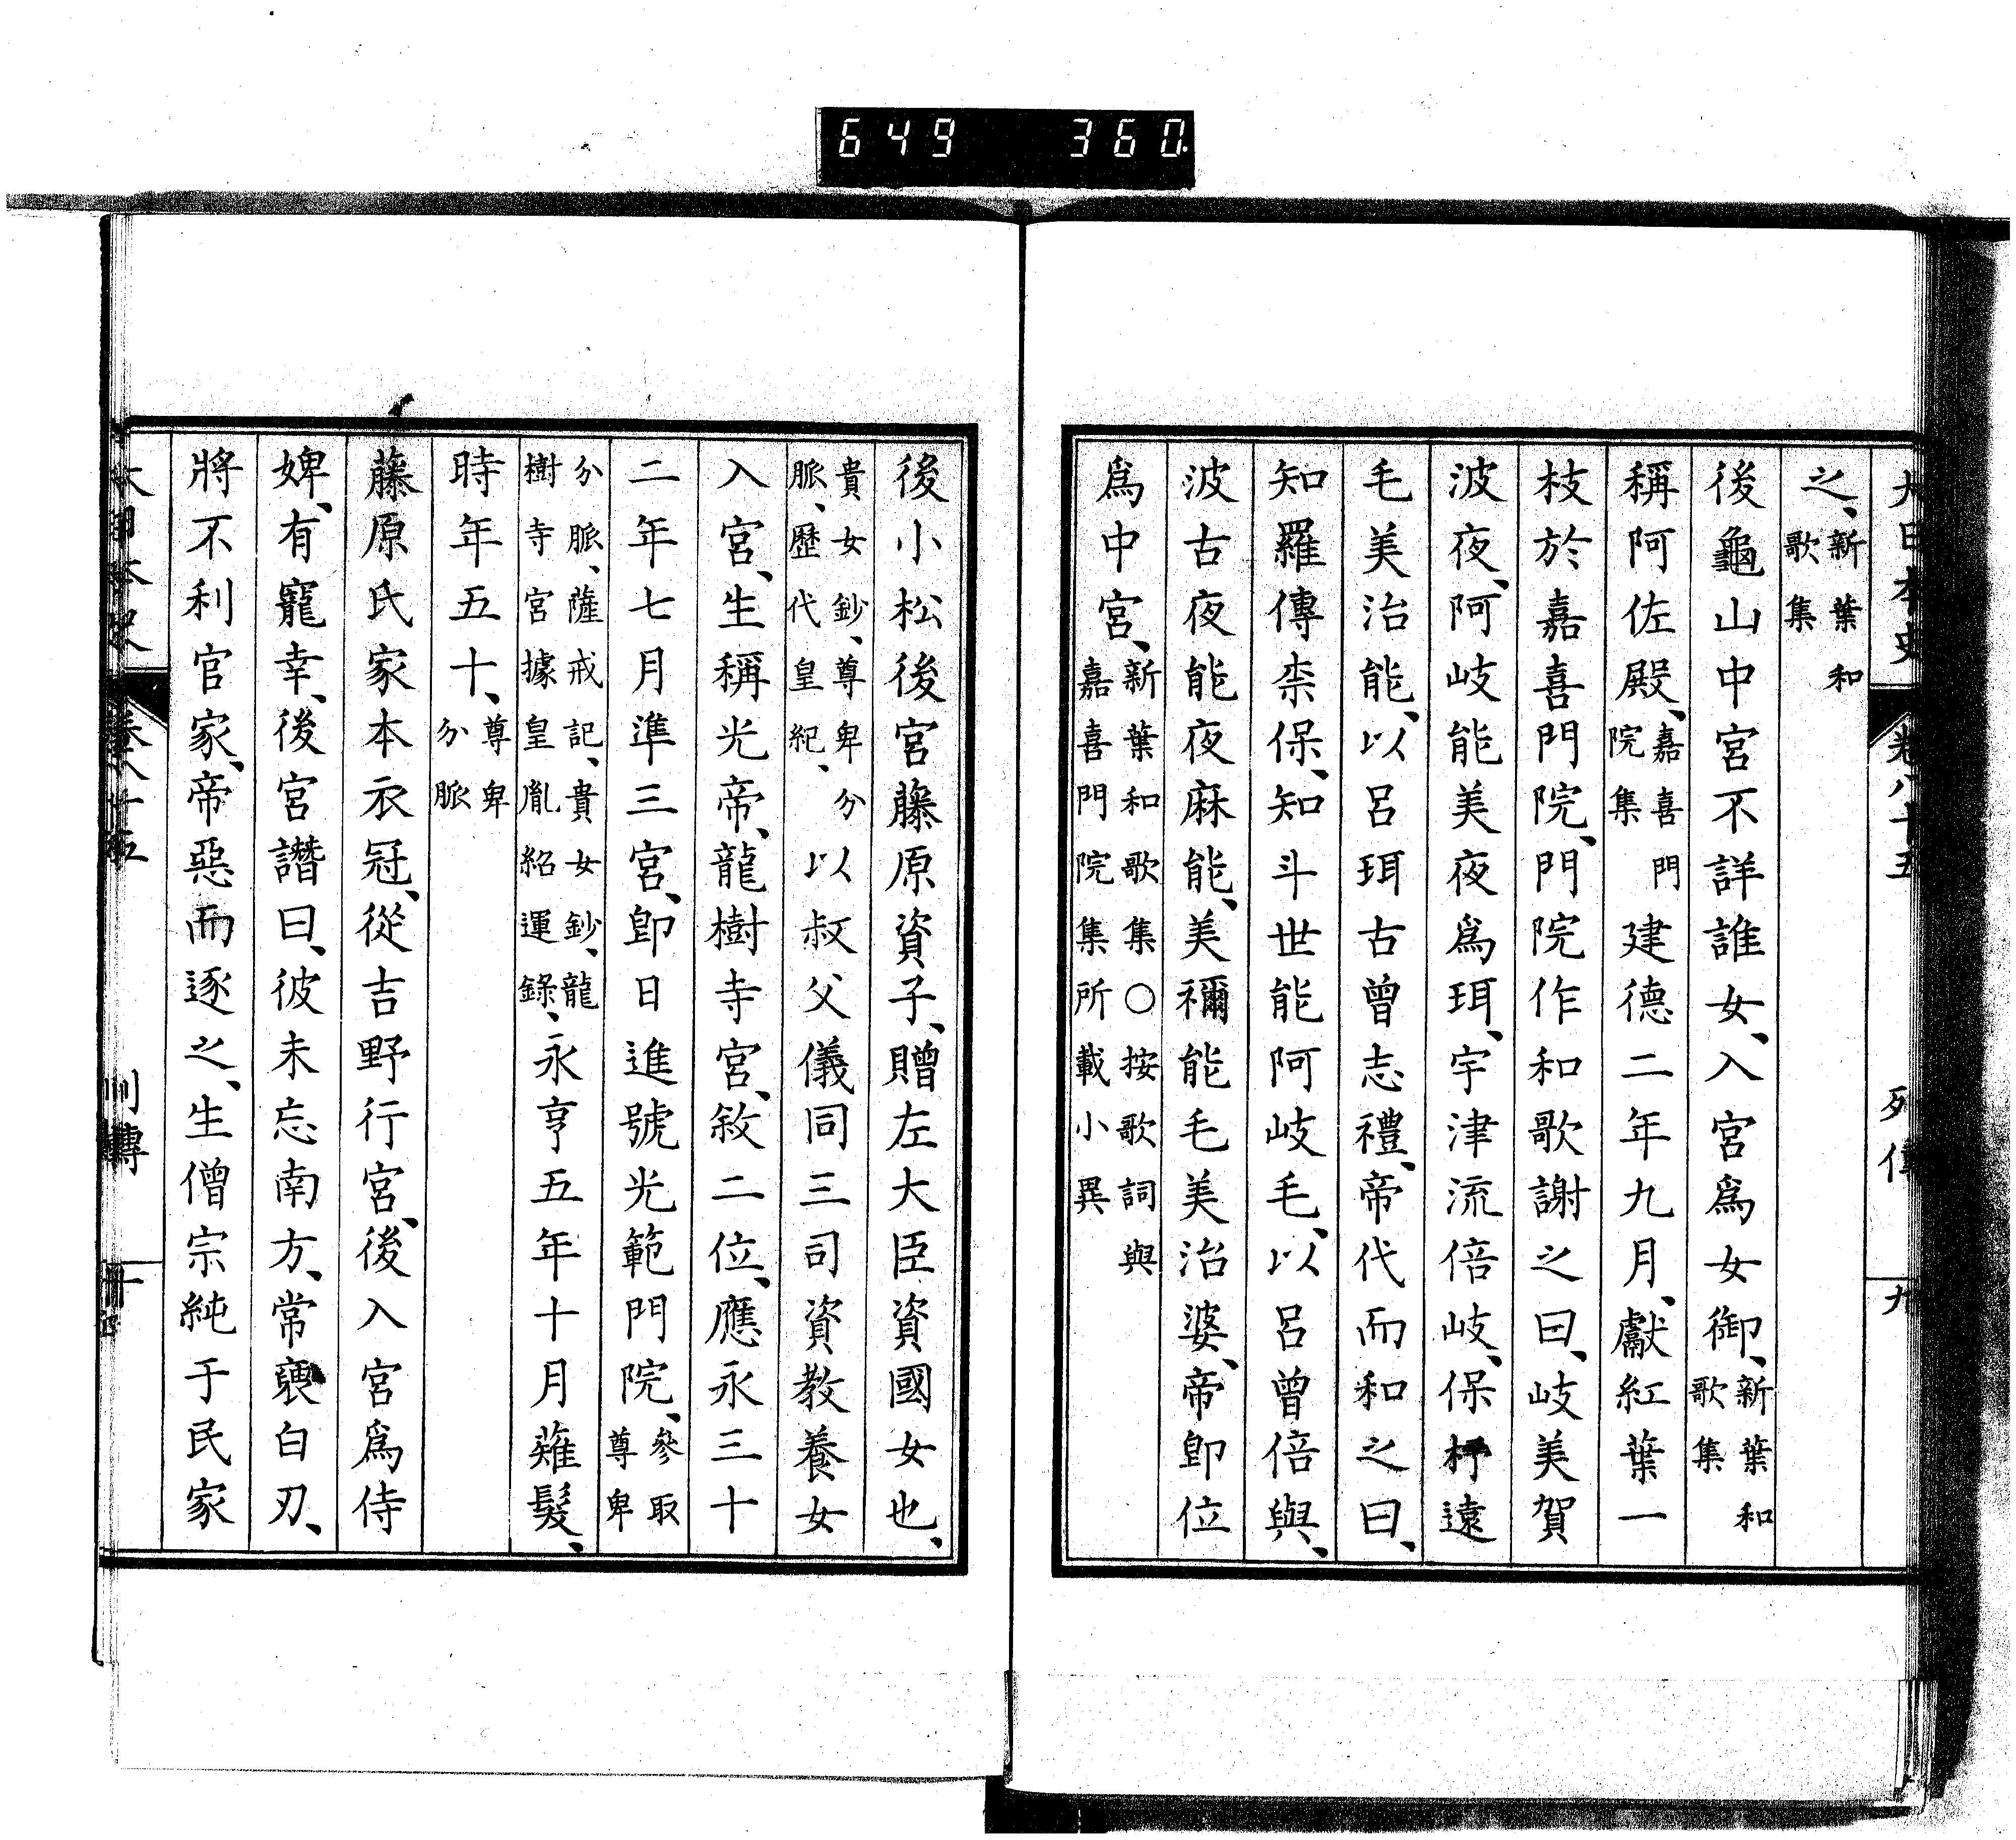 649 360
大日本史 卷八十五 列傳 九
之、新葉和歌集
後龜山中宮不詳誰女、入宮爲女御、新葉和歌集
稱阿佐殿、嘉喜門院集 建德二年九月、獻紅葉一
枝於嘉喜門院、門院作和歌謝之曰、岐美賀
波夜、阿岐能美夜爲珥、宇津流倍岐、保杼遠
知羅傳柰保、知斗世能阿岐毛、以呂曾倍與、
毛美治能、以呂珥古曾志禮、帝代而和之曰、
波古夜能夜麻能、美禰能毛美治婆、帝即位
爲中宮、新葉和歌集○按歌詞與嘉喜門院集所載小異
後小松後宮藤原資子、贈左大臣資國女也、
貴女鈔、尊卑分脈、歷代皇紀、以叔父儀同三司資教養女
入宮、生稱光帝、龍樹寺宮、敘二位、應永三十
二年七月準三宮、即日進號光範門院、參取尊卑
分脈、薩戒記、貴女鈔、龍樹寺宮據皇胤紹運錄、永享五年十月薙髮、
時年五十、尊卑分脈
藤原氏家本衣冠、從吉野行宮、後入宮爲侍
婢、有寵幸、後宮譖曰、彼未忘南方、常裹白刃、
將不利官家、帝惡而逐之、生僧宗純于民家
大日本史 卷八十五 列傳